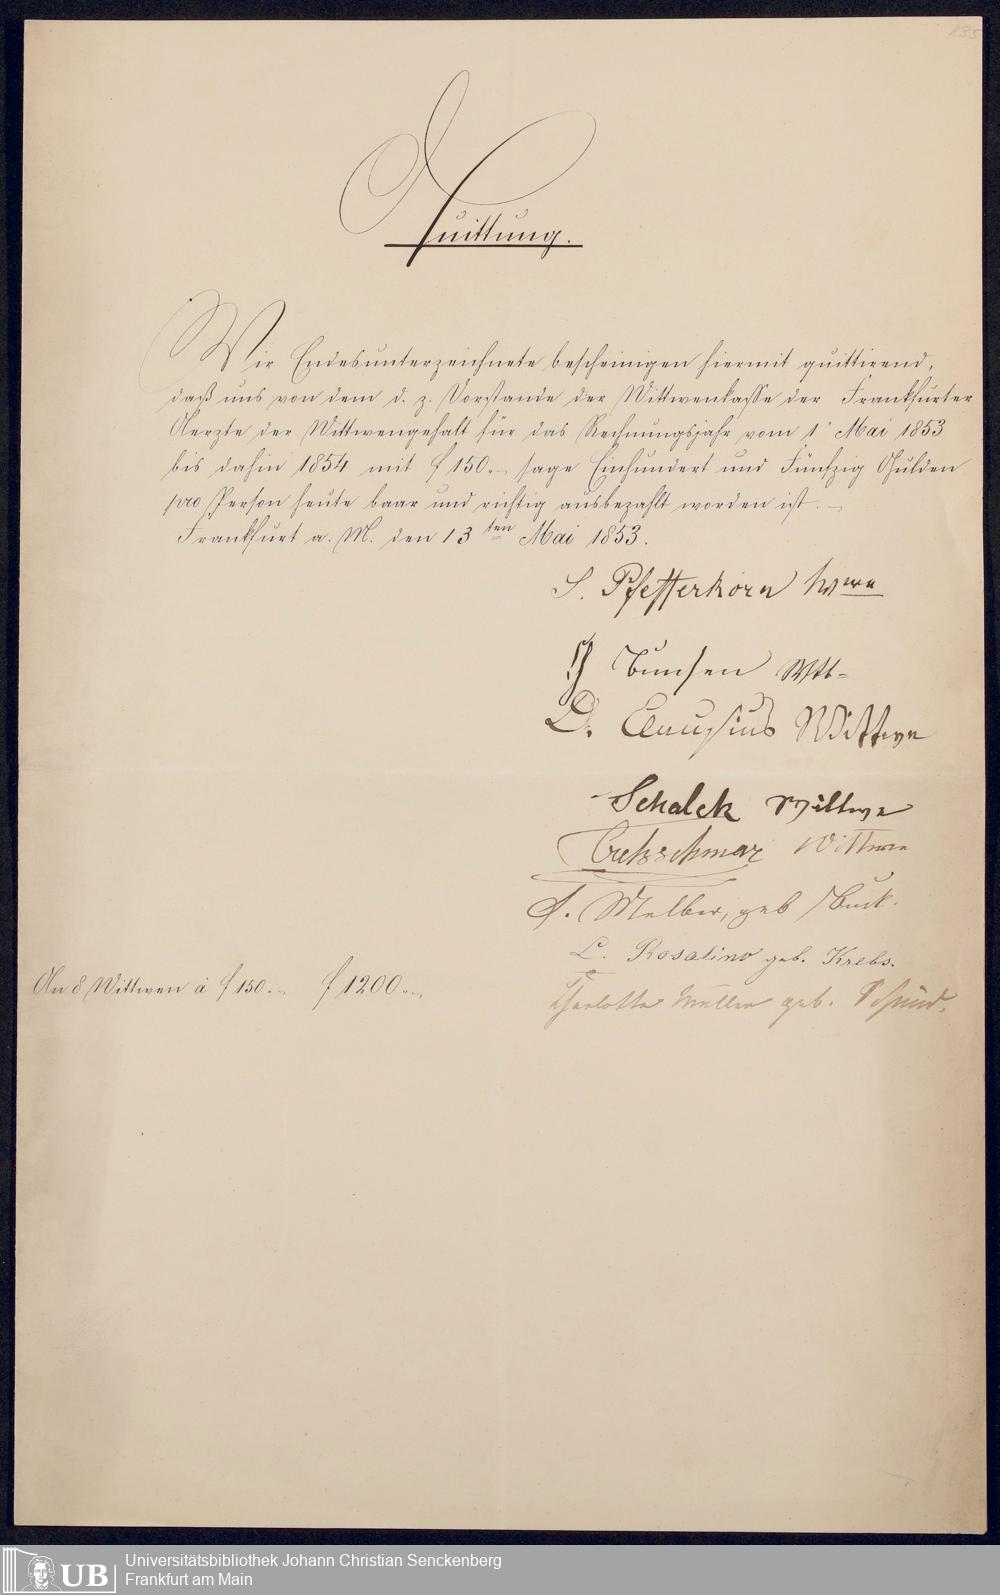 135
Quittung.
Wir Endesunterzeichnete bescheinigen hiermit quittirend,
daß uns von dem d. z. Vorstande der Wittwenkasse der Frankfurter
Aerzte der Wittwengehalt für das Rechnungsjahr vom 1' Mai 1853
bis dahin 1854 mit f 150.- sage Einhundert und Fünfzig Gulden
pro Person heute baar und richtig ausbezahlt worden ist. -
Frankfurt a. M. den 13ten Mai 1853.
S. Pfefferkorn Wwe
Bunsen Wtt-
D. Clausius Wittwe
Schalck Wittwe
Cretzschmar Wittwe
A. Melber, geb Buck.
L. Rosalino geb. Krebs.
Charlotte Müller geb. Schmid.
An 8 Wittwen á f 150.- f 1200.-
Universitätsbibliothek Johann Christian Senckenberg
UB Frankfurt am Main